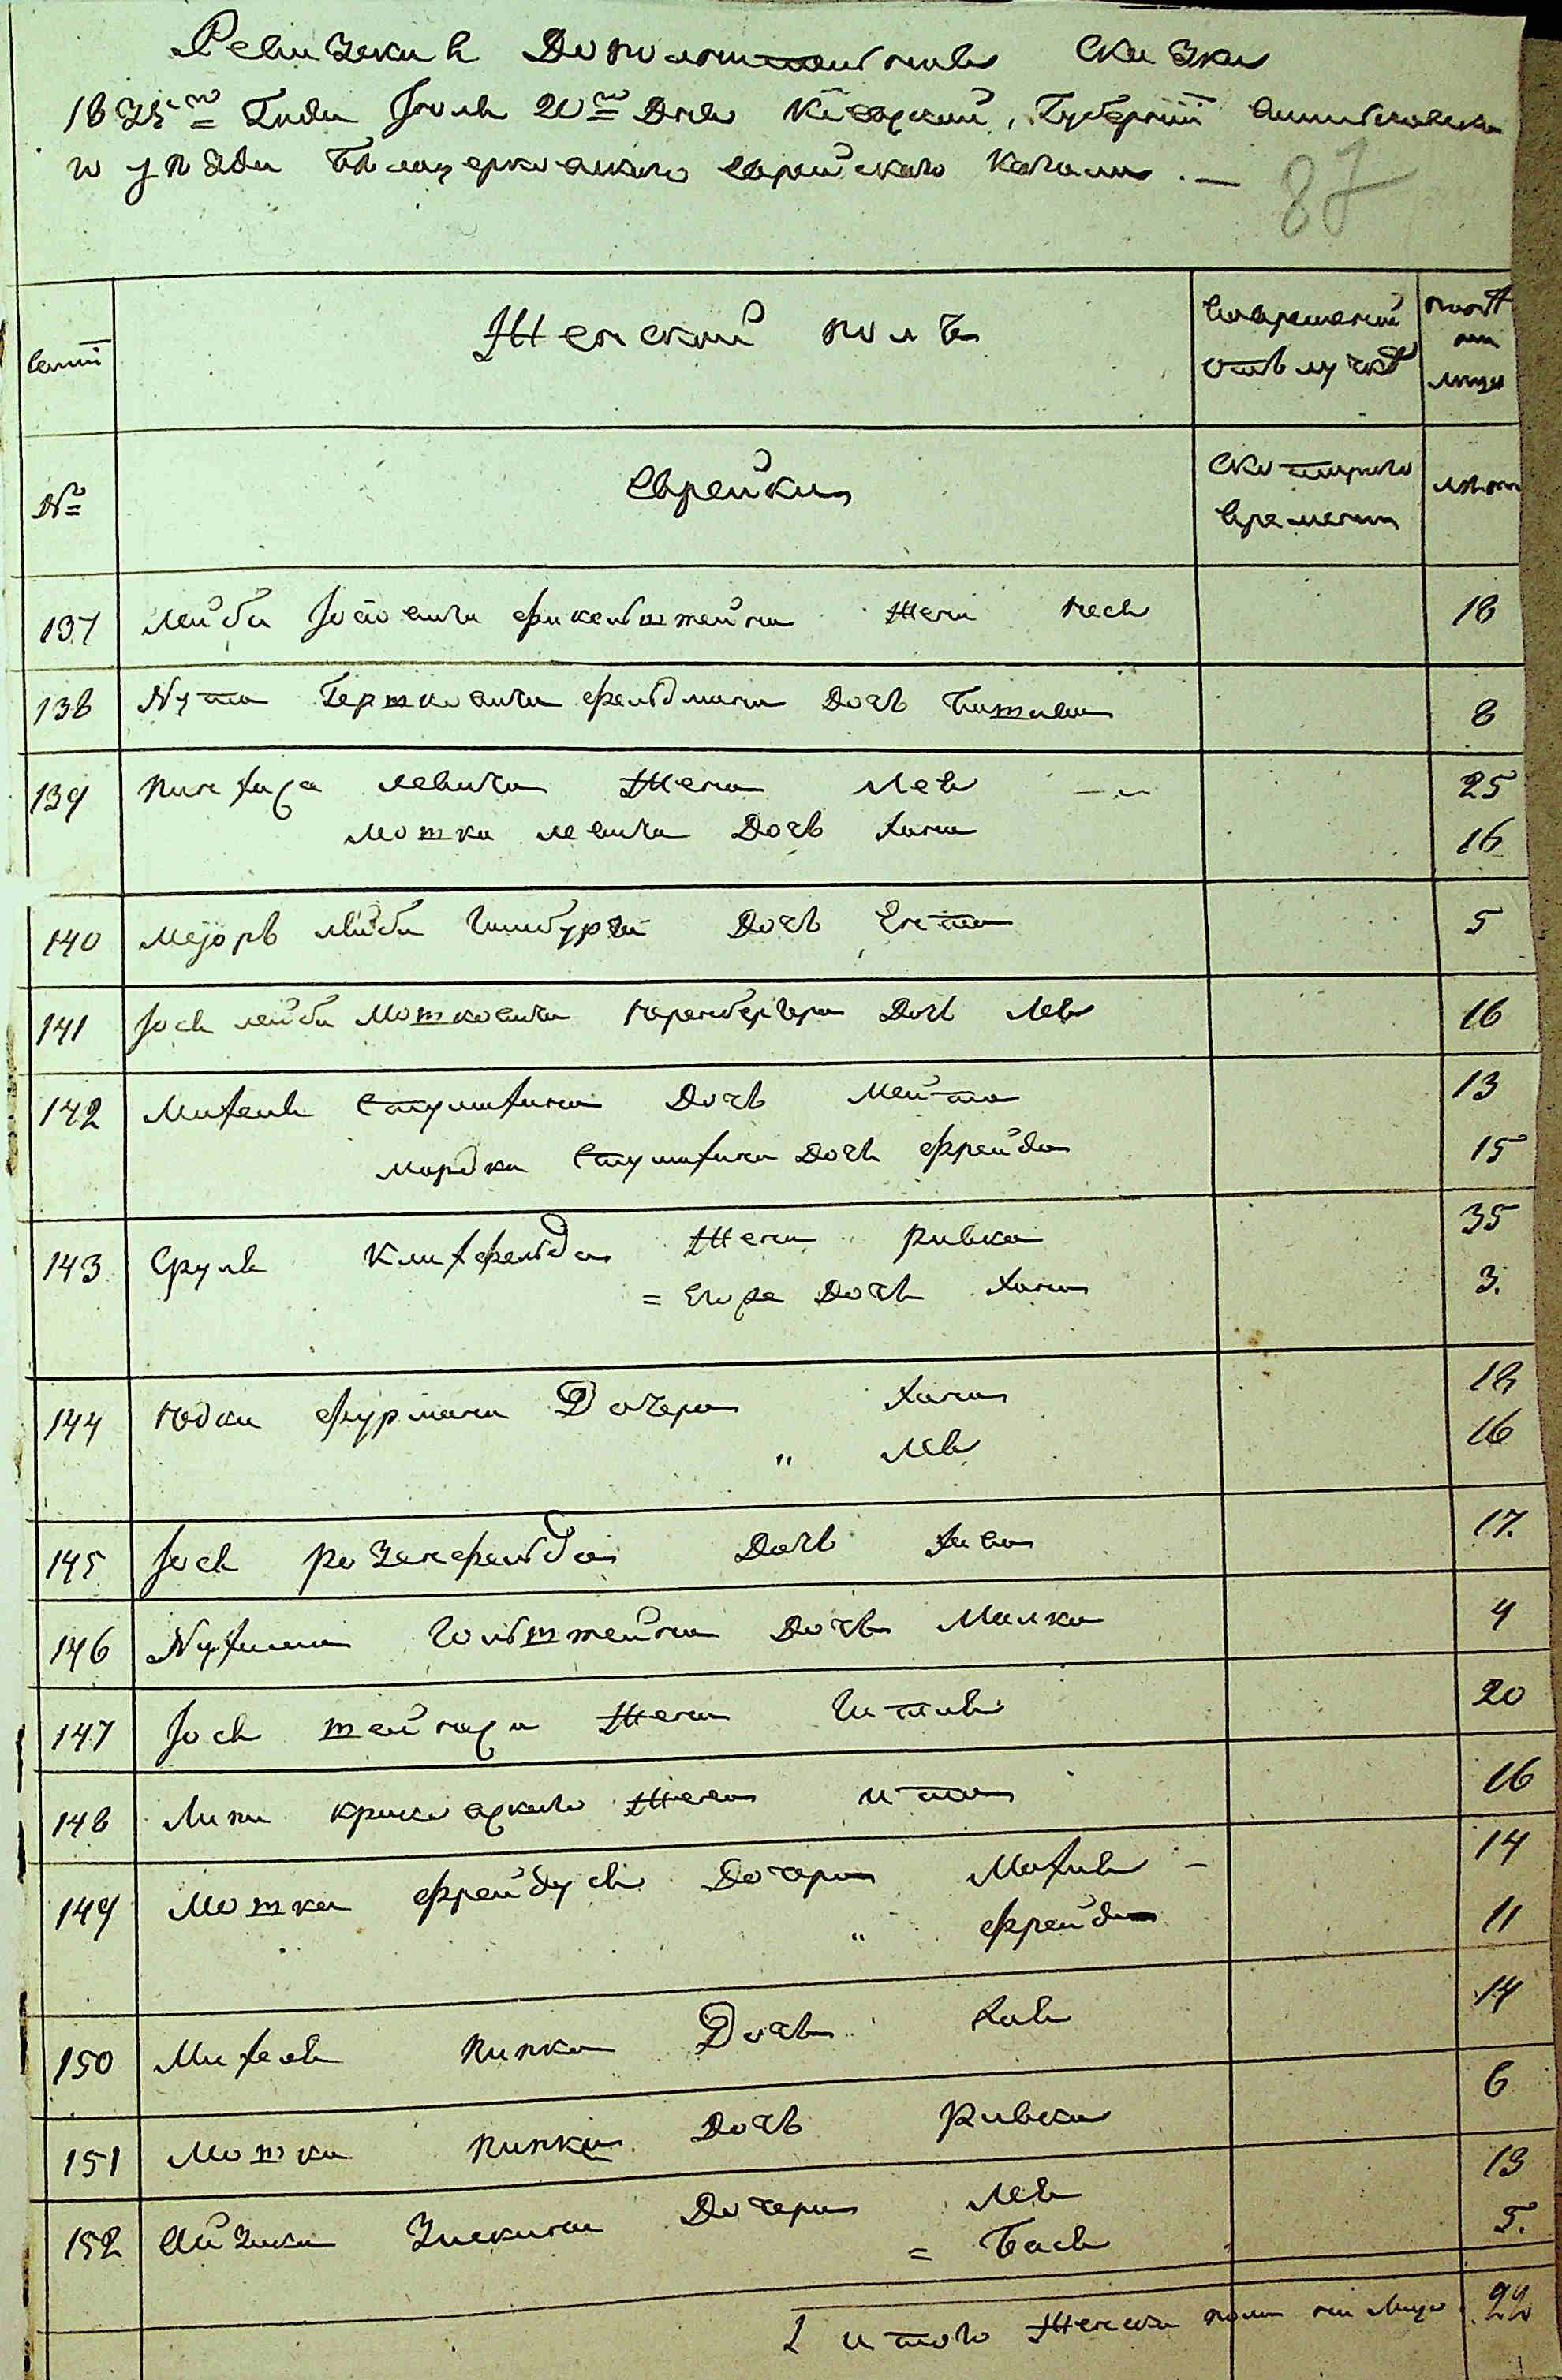 Ревизская Дополнительная сказка
1835го Года Июля 20го Дня Киевской Губернии Василковска
го уезда Белоцерковского еврейского Кагала.—
87
семи
Женский пол
Во временной отлучке
ныне на лицо
№
Еврейки
С которого времени
лета
137 Лейбы Иосевича Фикельштейна Жена Неся 18
138 Нута Гершковича Фельдмана Дочь 8
139 Пинхаса Левича Жена Лея 25
Мошка Левича Дочь Хана 16
140 Мейора Лейбы Гинсбурга Дочь Ента 5
141 Иось Лейбы Мошковича Нренбергера Дочь Лея 16
142 Михеля Стумахина Дочь Мейта 13
Мордка Стумахина Дочь Фрейда 15
143 Сруля Клихфельда Жена Ривка 35
= Его же Дочь Хана 3.
144 Юдки Фурмана Дочери Хана 18
" Лея 16
145 Иося Розенфельда Дочь Хава 17.
146 Нухима Гольштейна Дочь Малка 4
147 Иося Жена Гитля 20
148 Липы Жена Ита 16
149 Мошка Фрейдуся Дочери Махля 14
" Фрейда 11
150 Михеля Пинка Дочь Хая 14
151 Мошка Пинка Дочь Ривка 6
152 Айзика Зискина Дочери Лея 13
= Бася 5.
Итого Женска пола на Лицо 22